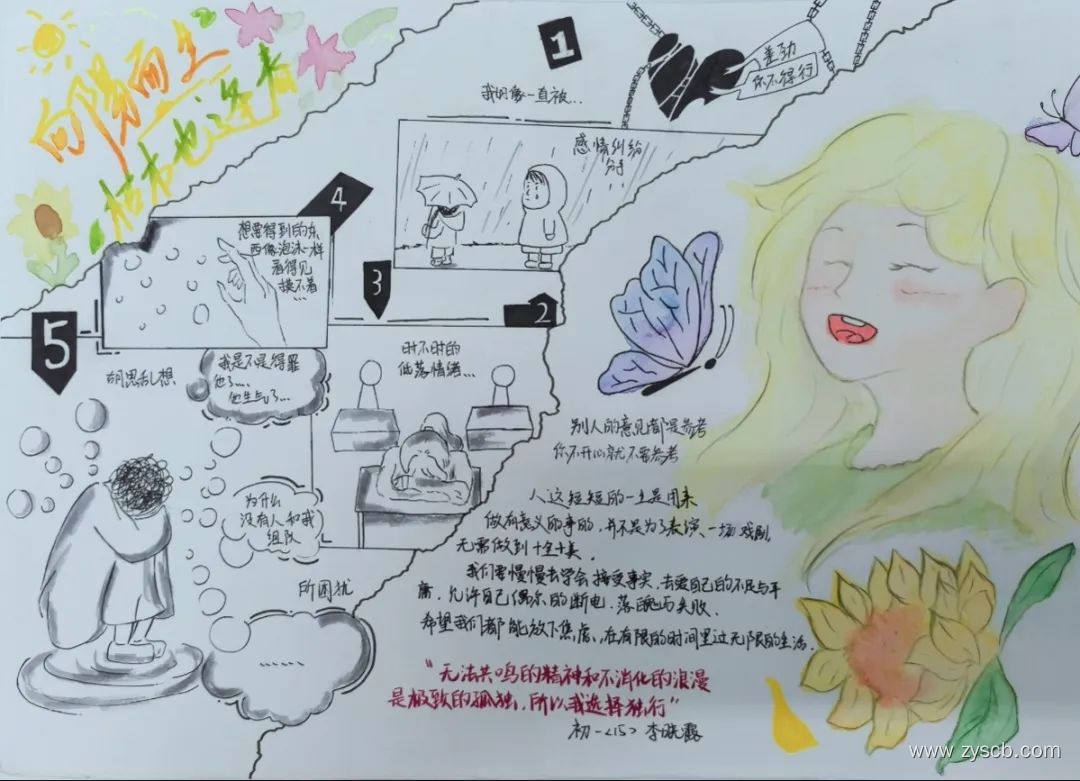 向陽而生
1
我们像一直被...
差劲
你不得行
感情纠纷
分手
4
想要得到的东
西像泡沫一样
看得见
摸不着
...
3
2
5
时不时的
低落情绪...
胡思乱想
我是不是得罪
他了...
他生气了...
为什么
没有人和我
组队
所困扰
......
别人的意见都是参考
你不开心就不要参考
人这短短的一生是用来
做有意义的事的，并不是为了表演一场戏剧，
无需做到十全十美．
我们要慢慢去学会接受事实，去爱自己的不足与平
庸．允许自己偶尔的断电．落魄与失败．
希望我们都能放下焦虑，在有限的时间里过无限的生活．
“无法共鸣的精神和不消化的浪漫
是极致的孤独．所以我选择独行”
初一<15> 李晓露
www.zyscb.com